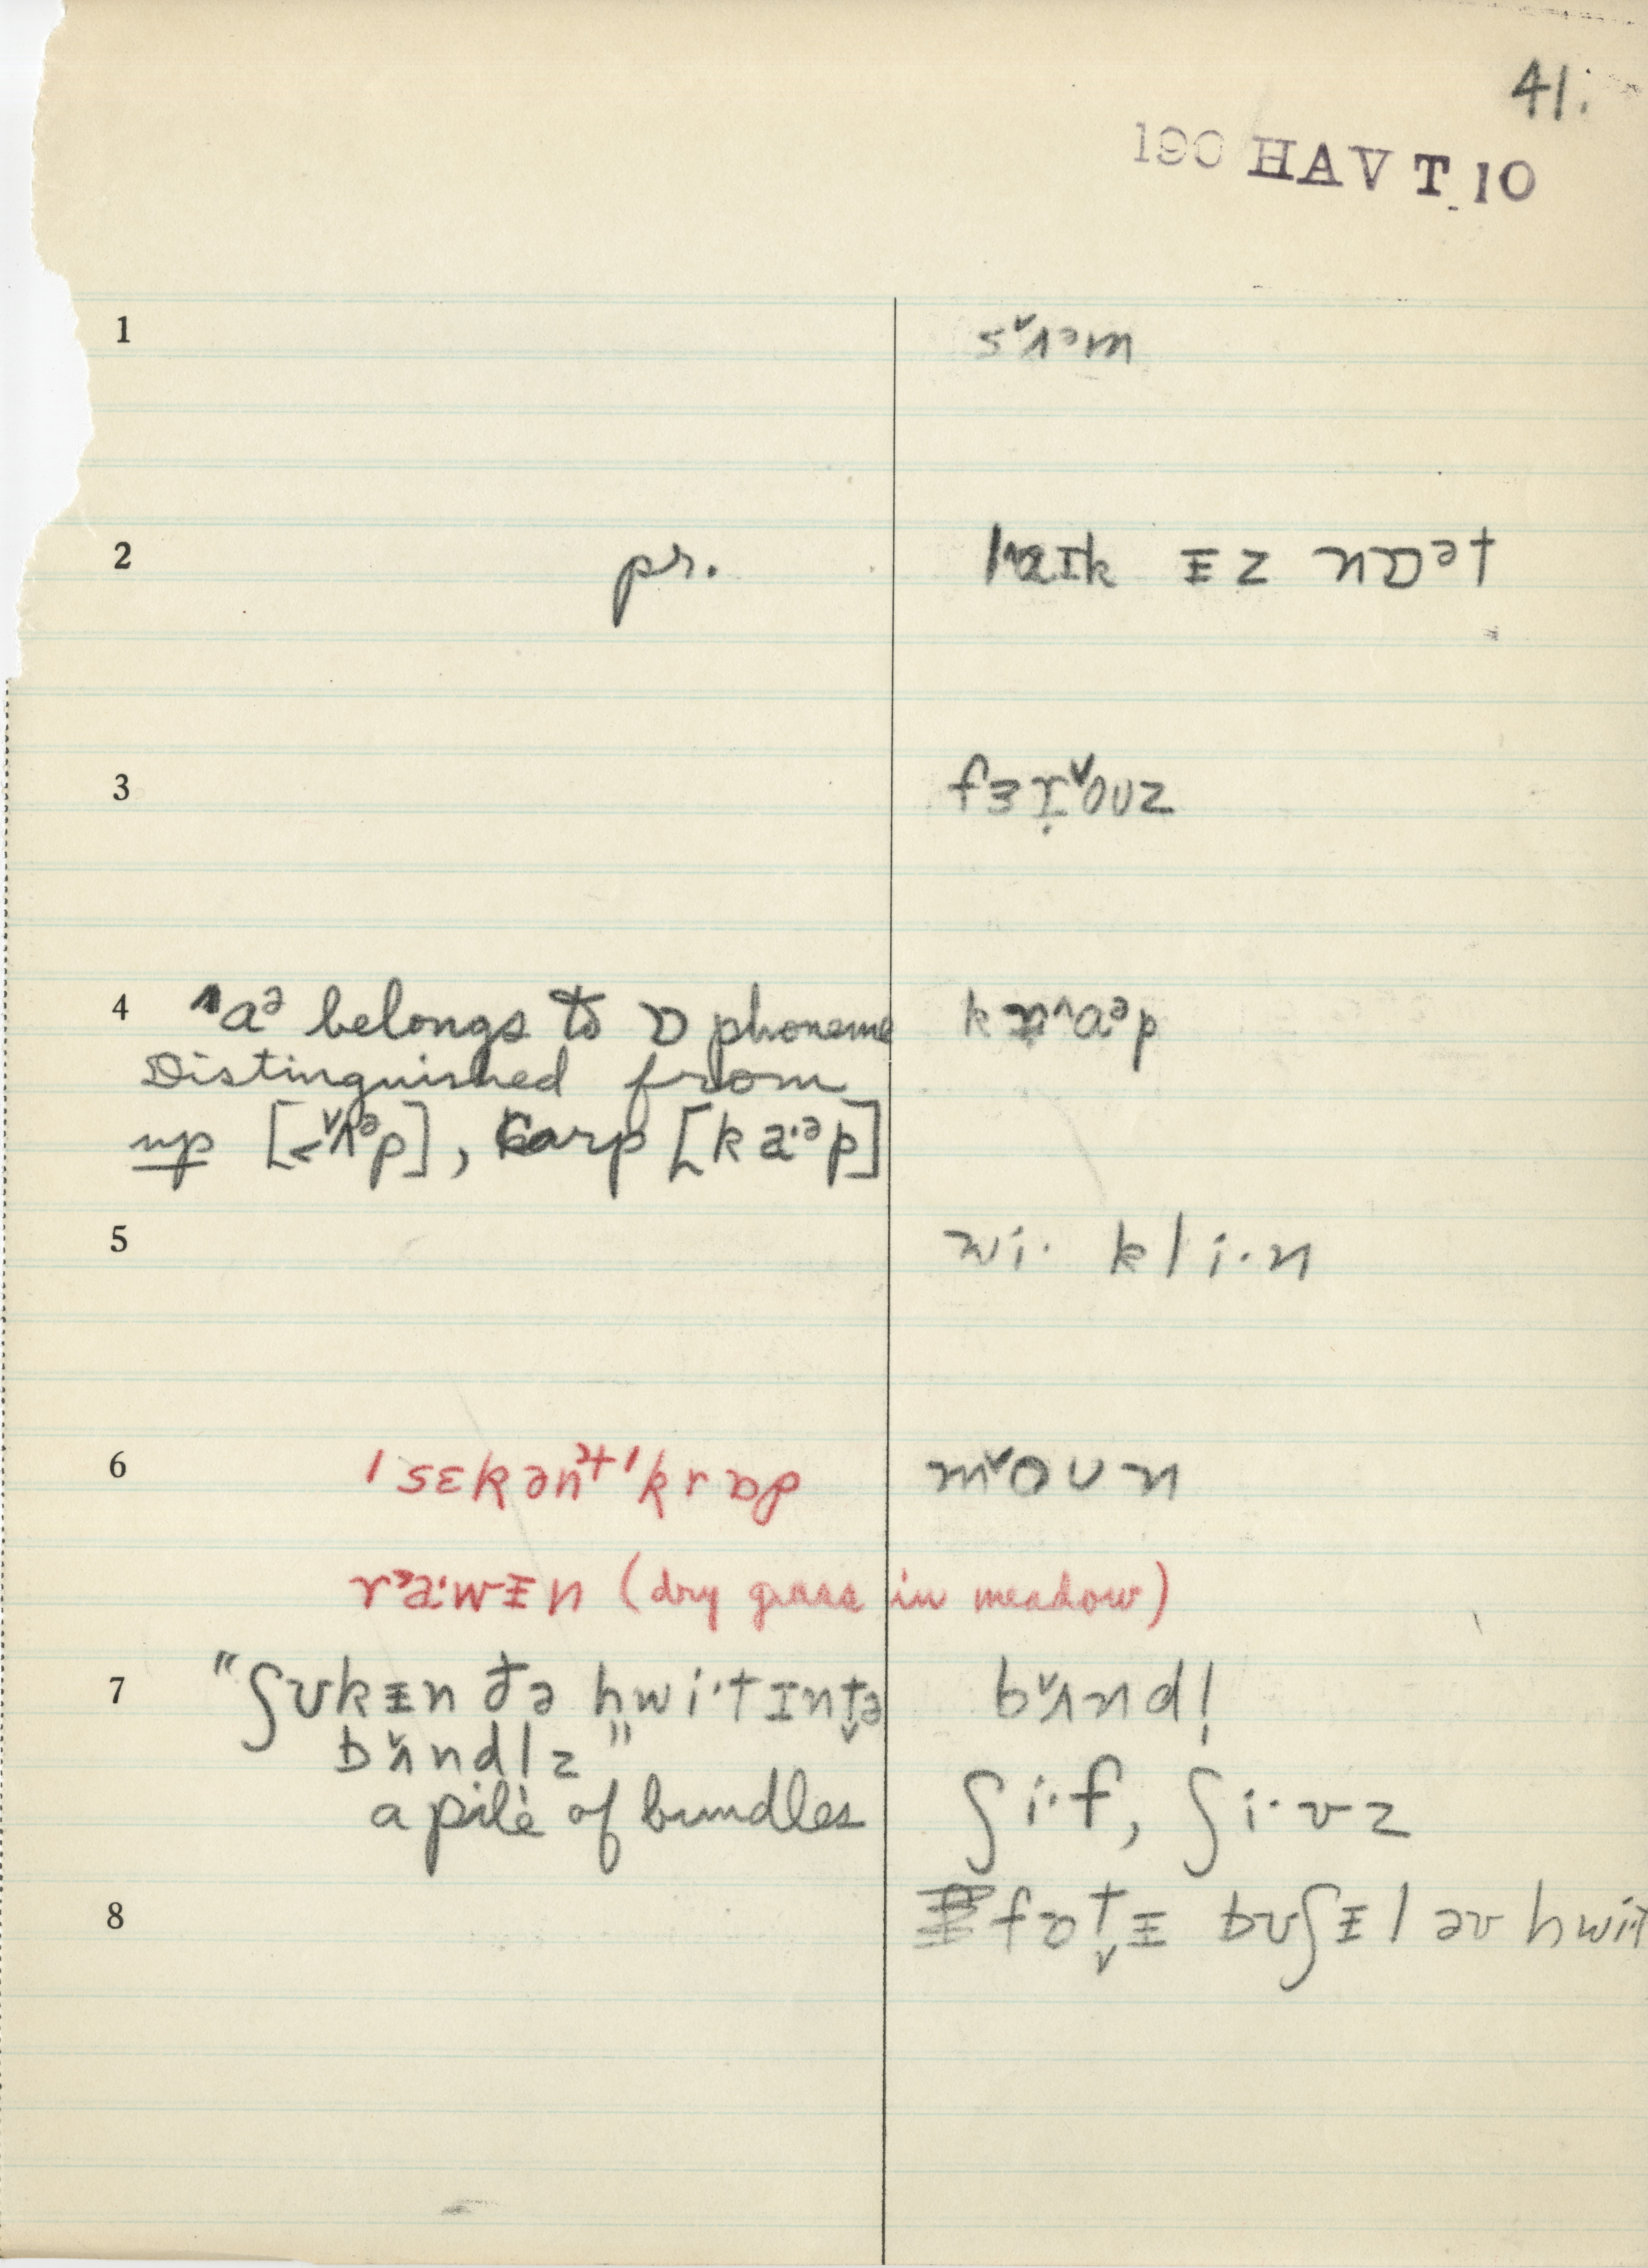 41.
190 HAV T 10
1 sᵛʌᵊm
2 pr. laɪk ᵻz nɒᵊt
3 fɜɪ̣ᵛouz
4 aᵊ belongs to ɒ phoneme kr^aᵊp
Distinguished from
up [<ᵛʌᵊp], carp [ka·ᵊp]
5 wi· kli·n
6 ˈsɛkənᵗˈkrɒp mᵛoun
rᵊa·wᵻn (dry grass in meadow)
7 "ʃʊkᵻn ðə hwi·t ɪnt̬ə bᵛʌndl̩
bᵛʌndl̩z"
a pile of bundles ʃi·f, ʃi·vz
8 fɒt̬ᵻ bʊʃᵻl əv hwi·t